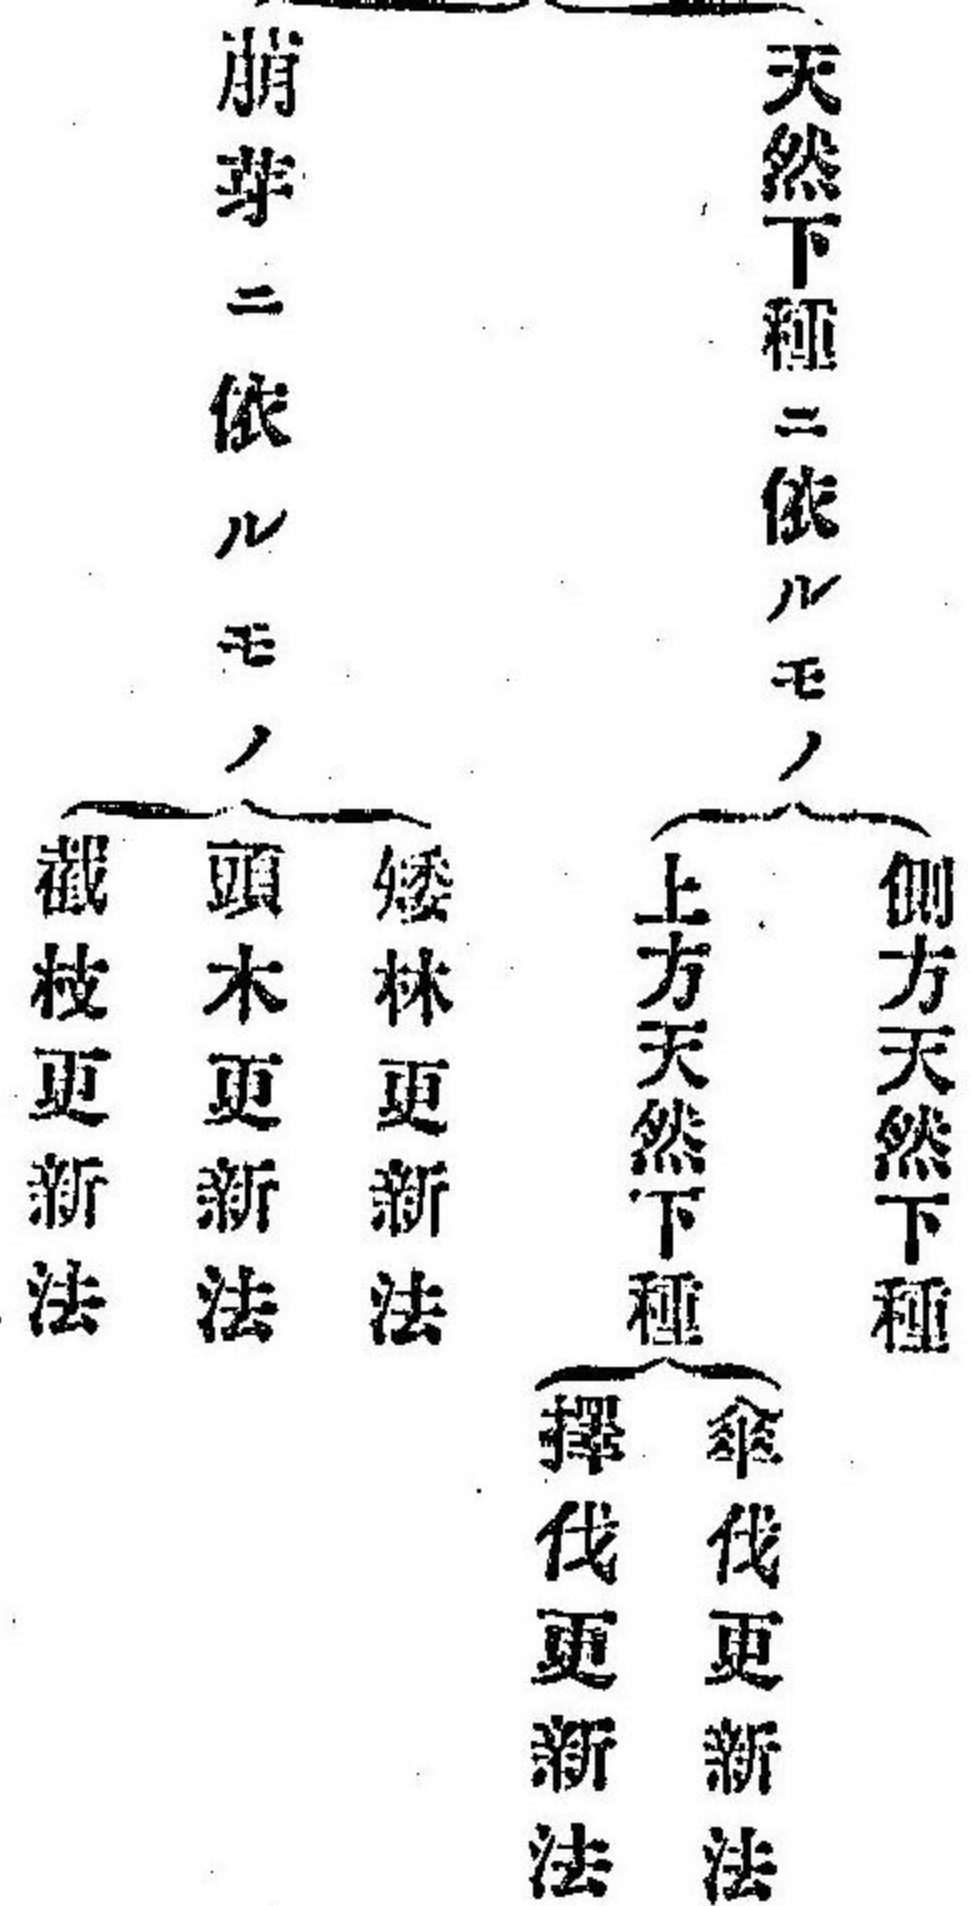 天然下種ニ依ルモノ
側方天然下種
上方天然下種
傘伐更新法
擇伐更新法
萠芽ニ依ルモノ
矮林更新法
頭木更新法
截枝更新法